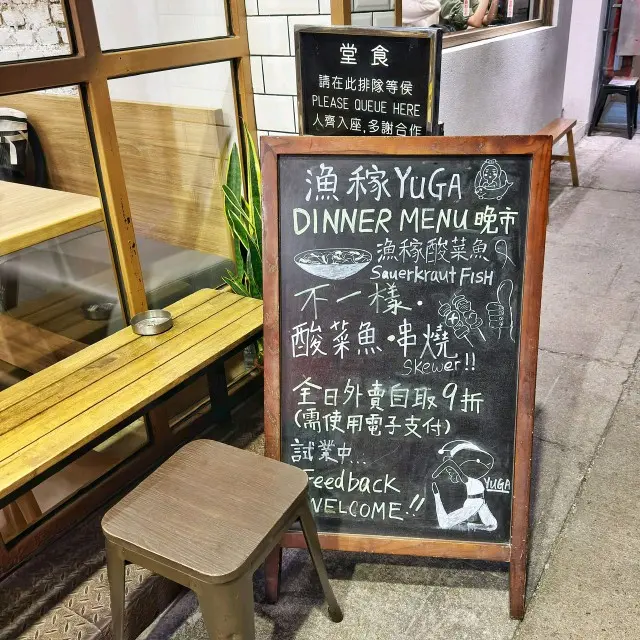 堂食
請在此排隊等侯
PLEASE QUEUE HERE
人齊入座,多謝合作
漁稼YUGA
DINNER MENU 晚市
漁稼酸菜魚
Sauerkraut FisH
不一樣·
酸菜魚·串燒
Skewer!!
全日外賣自取9折
(需使用電子支付)
試業中...
Feedback
WELCOME!!
YUGA